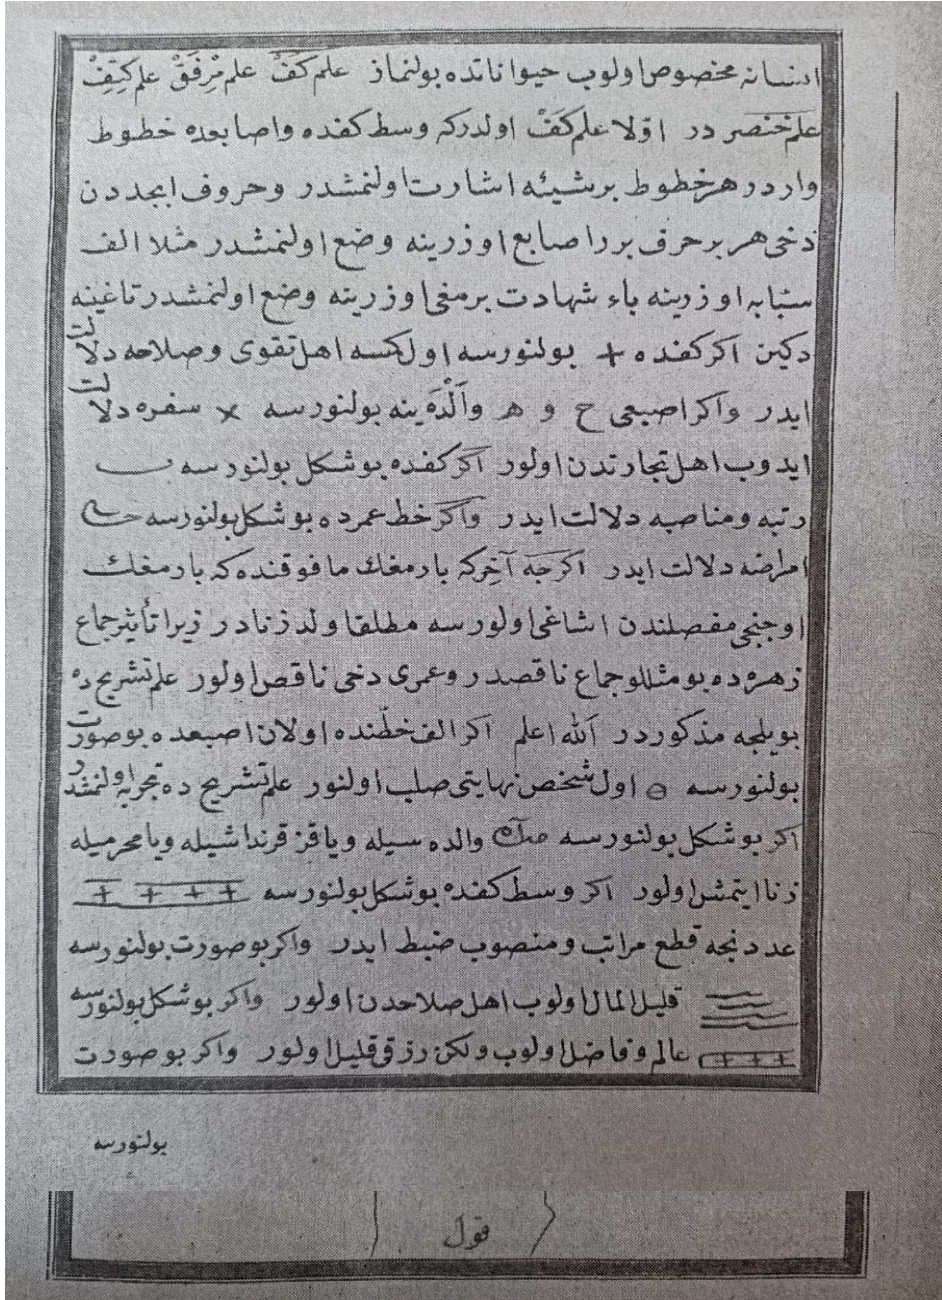 انسانه مخصوص اولوب حیواناتده بولنماز علم كَفّ علم مْرِفَقْ علم كِتِفْ
علم خنصر در اوّلا علم كَفّ اولدركه وسط كفده واصابعده خطوط
واردر هر خطوط برشیئه اشارت اولنمشدر وحروف ابجددن
دخی هر بر حرف بر راصابع اوزرینه وضع اولنمشدر مثلا الف
ستبابه اوزرینه باء شهادت برمغی اوزرینه وضع اولنمشدر تاغینه
دكین اكر كفده + بولنورسه اول كسه اهل تقوی وصلاحه دلالت
ایدر واكر اصبعی ح و ه وَاَلْدَه ینه بولنورسه × سفره دلالت
ایدوب اهل تجارتدن اولور اكر كفده بوشكل بولنورسه
رتبه ومناصبه دلالت ایدر واكر خط عمرده بوشكل بولنورسه
امراضه دلالت ایدر اكرجه آخِركه بارمغك مافوقنده كه بارمغك
اوجنجی مفصلندن اشاغی اولورسه مطلقا ولد زنادر زیرا تأثیر جماع
زهره ده بو مثللو جماع ناقصدر وعمری دخی ناقص اولور علم تشریح ده
بویلجه مذكوردر الله اعلم اكر الف خطّنده اولان اصبعده بوصورت
بولنورسه ه اول شخص نهایتی صلب اولنور علم تشریح ده تجربه اولنمشدر
اكر بوشكل بولنورسه والده سیله ویا قز قرنداشیله ویا محرمیله
زنا ایتمش اولور اكر وسط كفده بوشكل بولنورسه + + + +
عددنجه قطع مراتب ومنصوب ضبط ایدر واكر بوصورت بولنورسه
قلیل المال اولوب اهل صلاحدن اولور واكر بوشكل بولنورسه
+ + + عالم وفاضل اولوب ولكن رزقی قلیل اولور واكر بوصورت
بولنورسه
قول